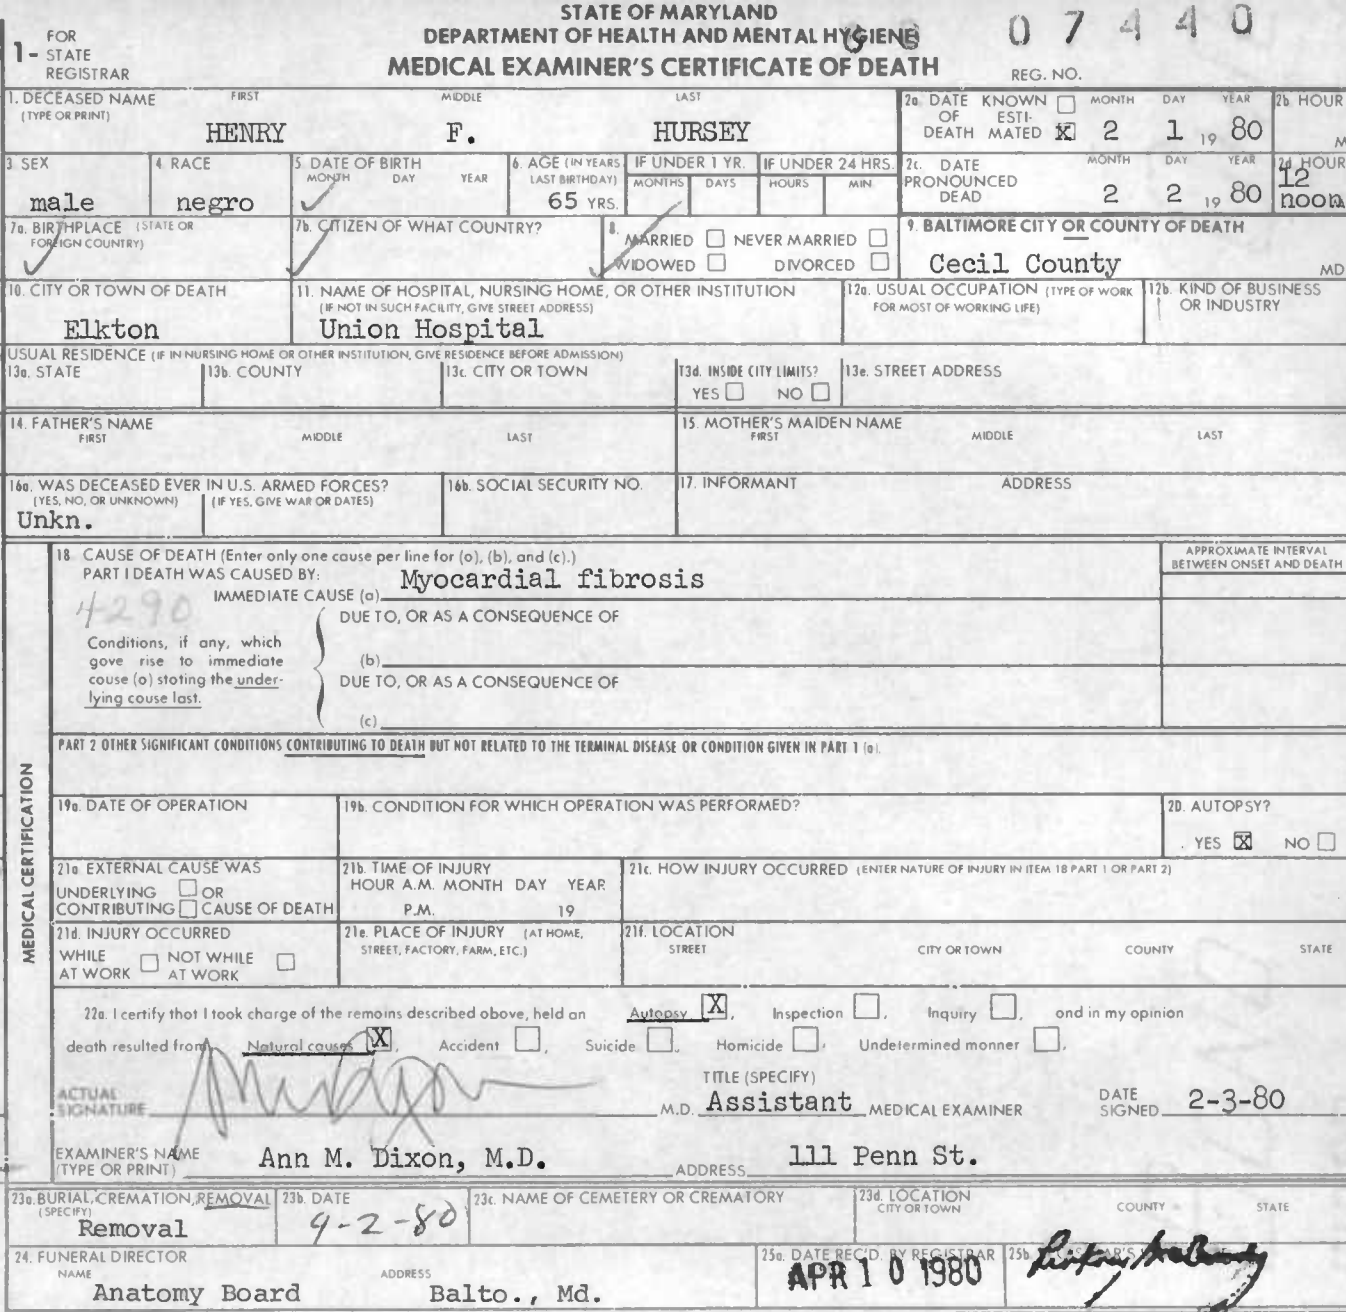 STATE OF MARYLAND
DEPARTMENT OF HEALTH AND MENTAL HYGIENE
MEDICAL EXAMINER'S CERTIFICATE OF DEATH
1- FOR STATE REGISTRAR
07440
REG. NO.
1. DECEASED NAME (TYPE OR PRINT) FIRST MIDDLE LAST
HENRY F. HURSEY
2a. DATE OF DEATH KNOWN ESTIMATED X MONTH DAY YEAR 2 1 19 80
2b HOUR M
3. SEX
male
4. RACE
negro
5. DATE OF BIRTH MONTH DAY YEAR
6. AGE (IN YEARS LAST BIRTHDAY)
65 YRS.
IF UNDER 1 YR. MONTHS DAYS
IF UNDER 24 HRS. HOURS MIN.
2c. DATE PRONOUNCED DEAD MONTH DAY YEAR 2 2 19 80
2d HOUR
12 noon
7a. BIRTHPLACE (STATE OR FOREIGN COUNTRY)
7b. CITIZEN OF WHAT COUNTRY?
8. MARRIED NEVER MARRIED
WIDOWED DIVORCED
9. BALTIMORE CITY OR COUNTY OF DEATH
Cecil County MD
10. CITY OR TOWN OF DEATH
Elkton
11. NAME OF HOSPITAL, NURSING HOME, OR OTHER INSTITUTION
(IF NOT IN SUCH FACILITY, GIVE STREET ADDRESS)
Union Hospital
12a. USUAL OCCUPATION (TYPE OF WORK FOR MOST OF WORKING LIFE)
12b. KIND OF BUSINESS OR INDUSTRY
USUAL RESIDENCE (IF IN NURSING HOME OR OTHER INSTITUTION, GIVE RESIDENCE BEFORE ADMISSION)
13a. STATE
13b. COUNTY
13c. CITY OR TOWN
13d. INSIDE CITY LIMITS?
YES NO
13e. STREET ADDRESS
14. FATHER'S NAME
FIRST MIDDLE LAST
15. MOTHER'S MAIDEN NAME
FIRST MIDDLE LAST
16a. WAS DECEASED EVER IN U.S. ARMED FORCES?
(YES, NO, OR UNKNOWN) (IF YES, GIVE WAR OR DATES)
Unkn.
16b. SOCIAL SECURITY NO.
17. INFORMANT ADDRESS
MEDICAL CERTIFICATION
18 CAUSE OF DEATH (Enter only one cause per line for (a), (b), and (c).)
PART I DEATH WAS CAUSED BY:
IMMEDIATE CAUSE (a) Myocardial fibrosis
4290
APPROXIMATE INTERVAL BETWEEN ONSET AND DEATH
DUE TO, OR AS A CONSEQUENCE OF
Conditions, if any, which
gave rise to immediate
cause (a) stating the under-
lying cause last.
(b)
DUE TO, OR AS A CONSEQUENCE OF
(c)
PART 2 OTHER SIGNIFICANT CONDITIONS CONTRIBUTING TO DEATH BUT NOT RELATED TO THE TERMINAL DISEASE OR CONDITION GIVEN IN PART 1 (a).
19a. DATE OF OPERATION
19b. CONDITION FOR WHICH OPERATION WAS PERFORMED?
20. AUTOPSY?
YES X NO
21a EXTERNAL CAUSE WAS
UNDERLYING OR
CONTRIBUTING CAUSE OF DEATH
21b. TIME OF INJURY
HOUR A.M. MONTH DAY YEAR
P.M. 19
21c. HOW INJURY OCCURRED (ENTER NATURE OF INJURY IN ITEM 18 PART 1 OR PART 2)
21d. INJURY OCCURRED
WHILE AT WORK NOT WHILE AT WORK
21e. PLACE OF INJURY (AT HOME, STREET, FACTORY, FARM, ETC.)
21f. LOCATION
STREET CITY OR TOWN COUNTY STATE
22a. I certify that I took charge of the remains described above, held an Autopsy X, Inspection , Inquiry , and in my opinion
death resulted from Natural causes X, Accident , Suicide , Homicide , Undetermined manner .
ACTUAL SIGNATURE M.D.
TITLE (SPECIFY)
Assistant MEDICAL EXAMINER
DATE SIGNED 2-3-80
EXAMINER'S NAME (TYPE OR PRINT) Ann M. Dixon, M.D.
ADDRESS 111 Penn St.
23a. BURIAL, CREMATION, REMOVAL (SPECIFY)
Removal
23b. DATE
4-2-80
23c. NAME OF CEMETERY OR CREMATORY
23d. LOCATION
CITY OR TOWN COUNTY STATE
24. FUNERAL DIRECTOR
NAME ADDRESS
Anatomy Board Balto., Md.
25a. DATE REC'D. BY REGISTRAR
APR 10 1980
25b.